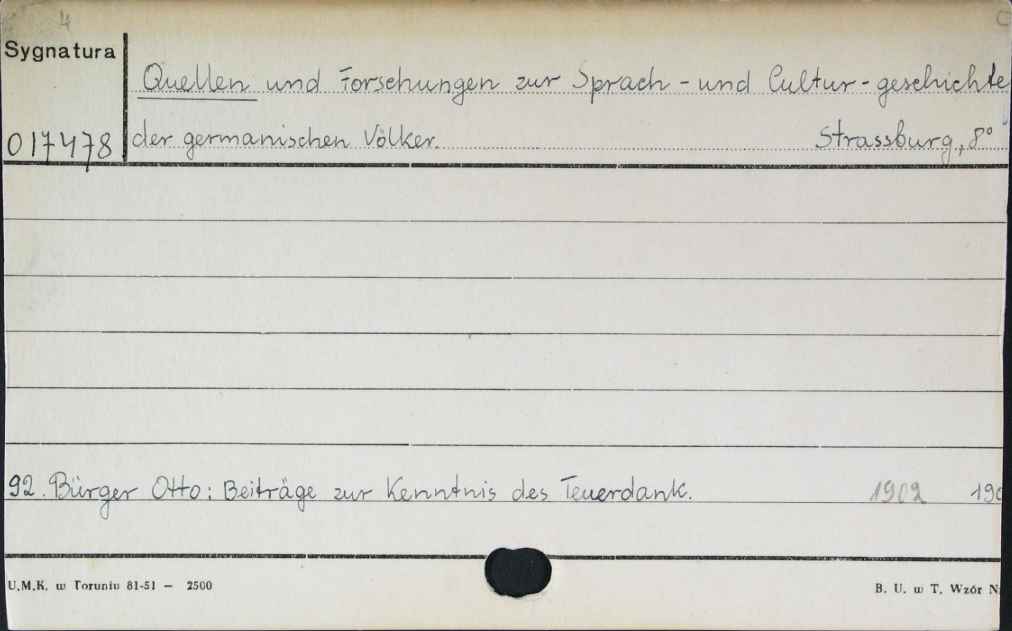 4 C
Sygnatura
Quellen und Forschungen zur Sprach - und Cultur - geschichte
017478 der germanischen Völker. Strassburg, 8°
92. Bürger Otto: Beiträge zur Kenntnis des Teuerdank. 1902 190
U.M.K. w Toruniu 81-51 — 2500 B. U. w T. Wzór N